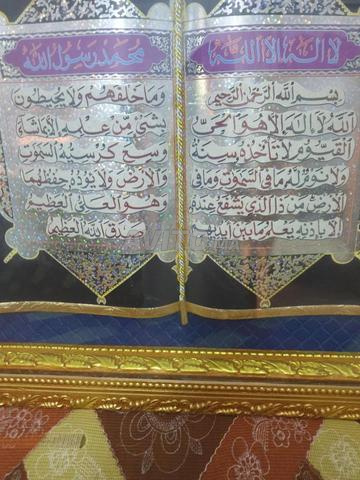 لا إله إلا الله
بسم الله الرحمن الرحيم
الله لا إله إلا هو الحي
القيوم لا تأخذه سنة
ولا نوم له ما في السموت وما في
الأرض من ذا الذي يشفع عنده
إلا بإذنه يعلم ما بين أيديهم
محمد رسول الله
وما خلفهم ولا يحيطون
بشيء من علمه إلا بما شاء
وسع كرسيه السموت
والأرض ولا يؤده حفظهما
وهو العلي العظيم
صدق الله العظيم